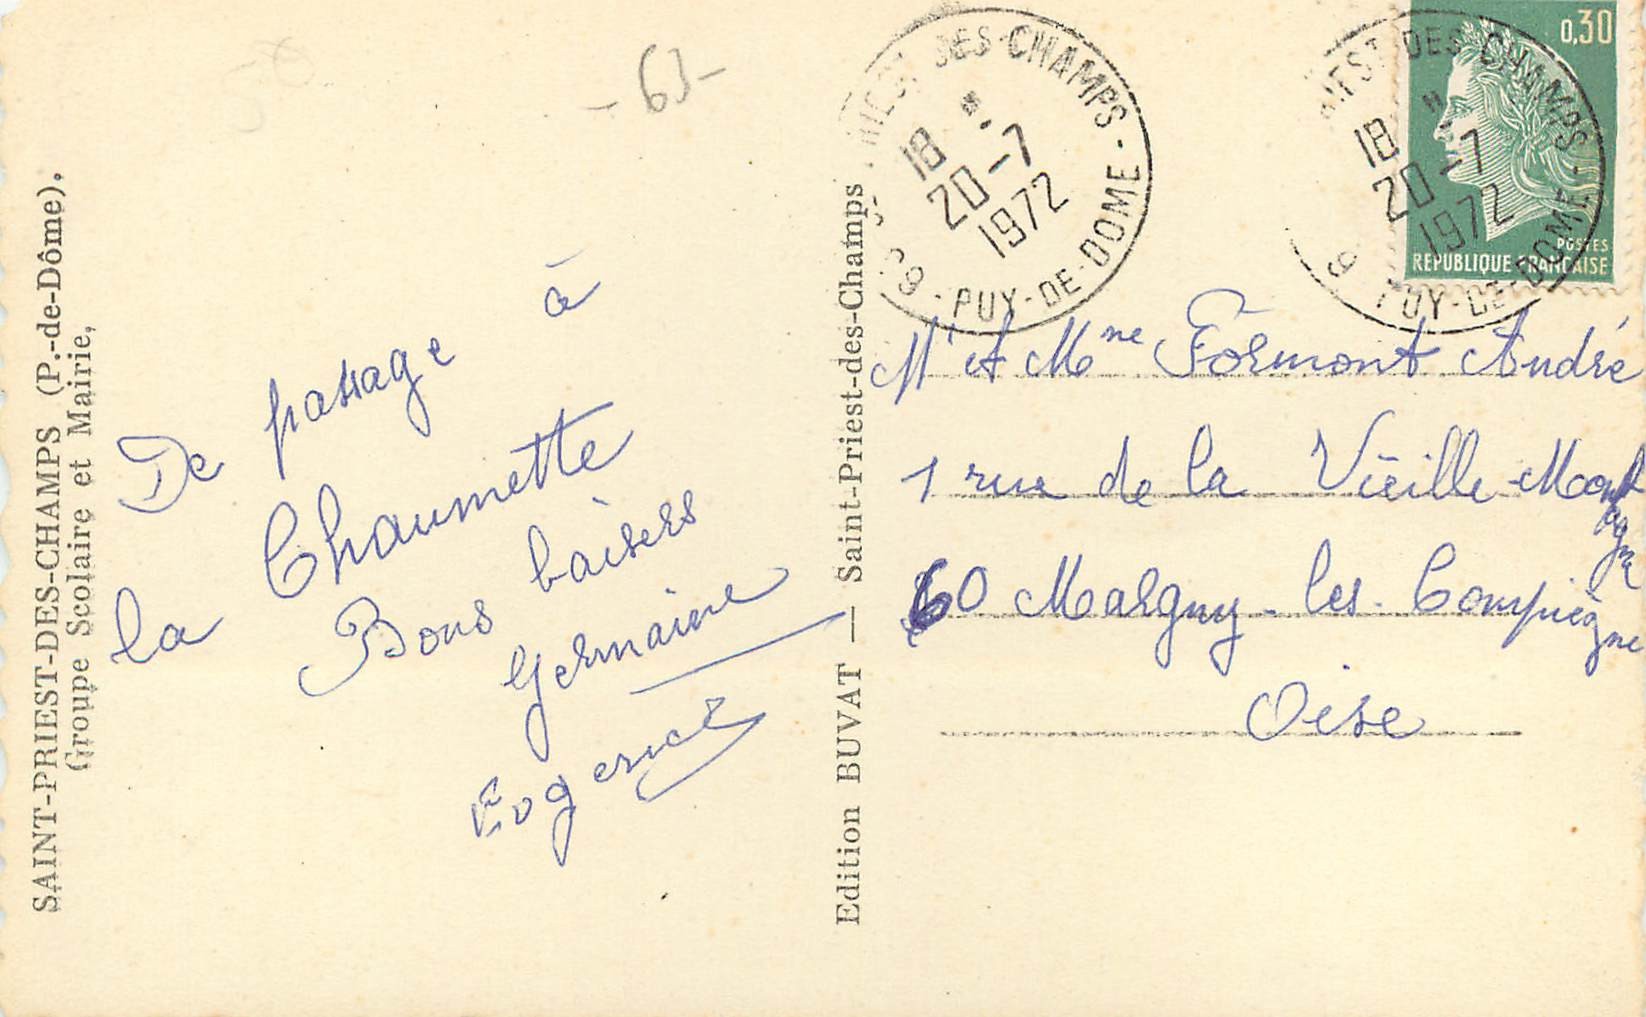 SAINT-PRIEST-DES-CHAMPS (P.-de-Dôme).
Groupe Scolaire et Mairie,
De passage à
la Chaumette
Bons baisers
Germaine
Edition BUVAT — Saint-Priest-des-Champs
- 63 -
DES-CHAMPS -
18
20-7
1972
63 - PUY-DE-DOME -
0,30
POSTES
REPUBLIQUE FRANÇAISE
IEST-DES-CHAMPS -
18
20-7
1972
PUY-DE-DOME -
Mr et Mme Formont André
1 rue de la Vieille Montagne
60 Margny-les-Compiègne
Oise